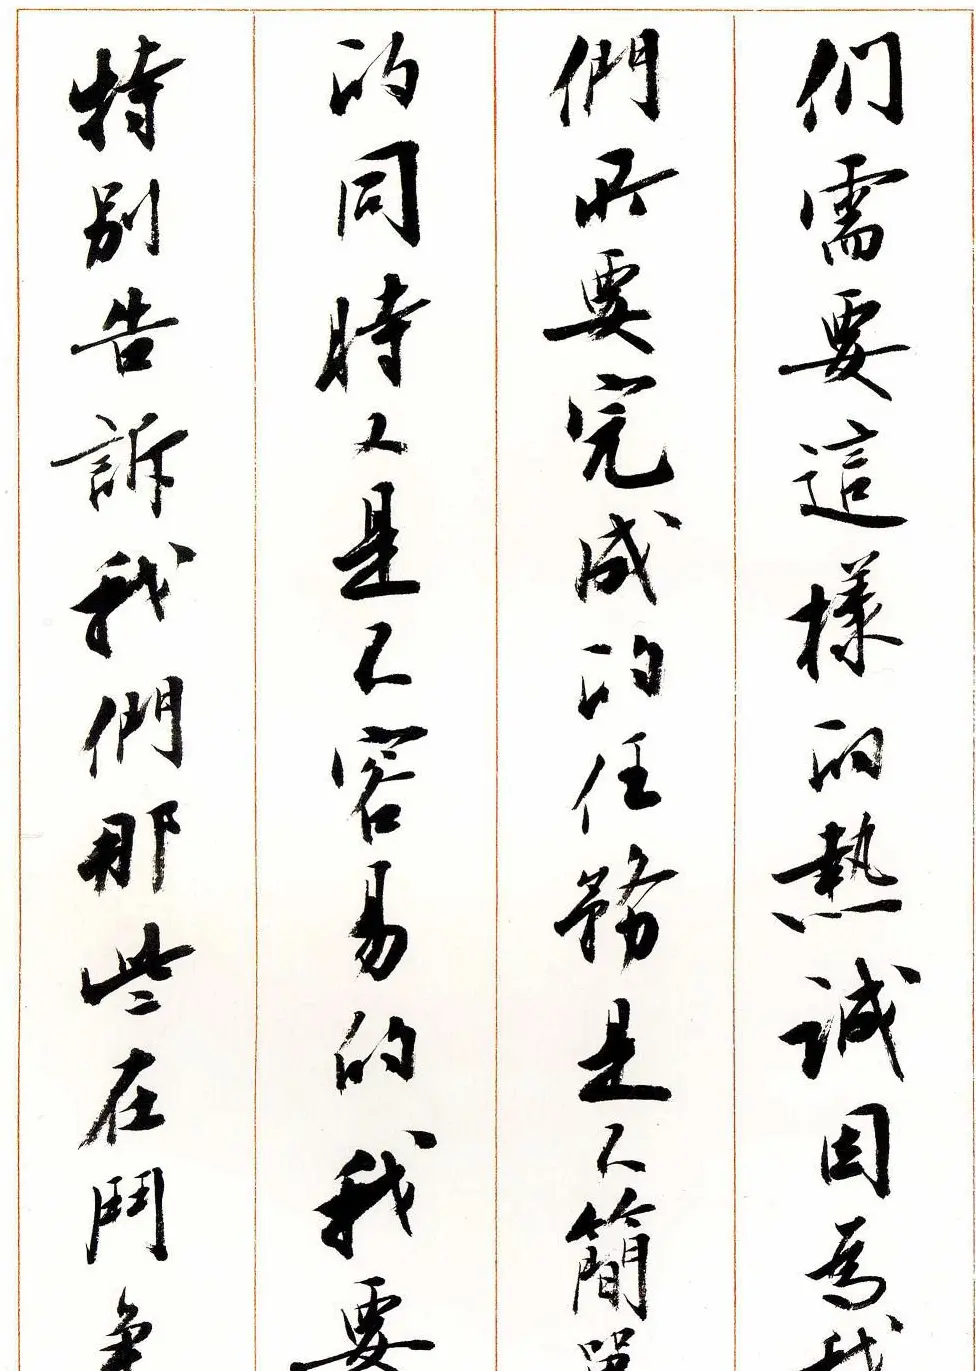 们需要這樣的熱誠因為我
們所要完成的任務是不簡單
的同時又是不容易的我要
特別告訴我們那些在鬥爭